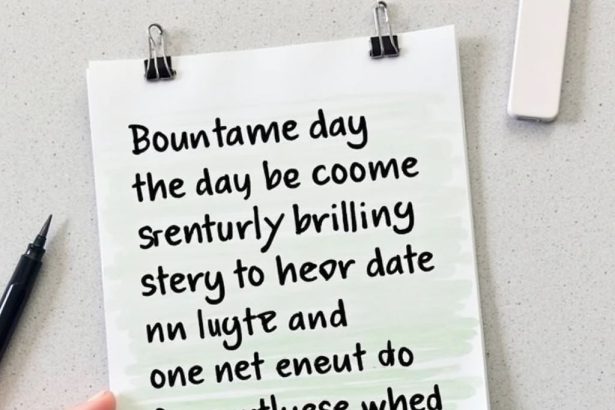 Bountame day
the day be coome
srenturly brilling
stery to heor date
nn lugte and
one net eneut do
whed